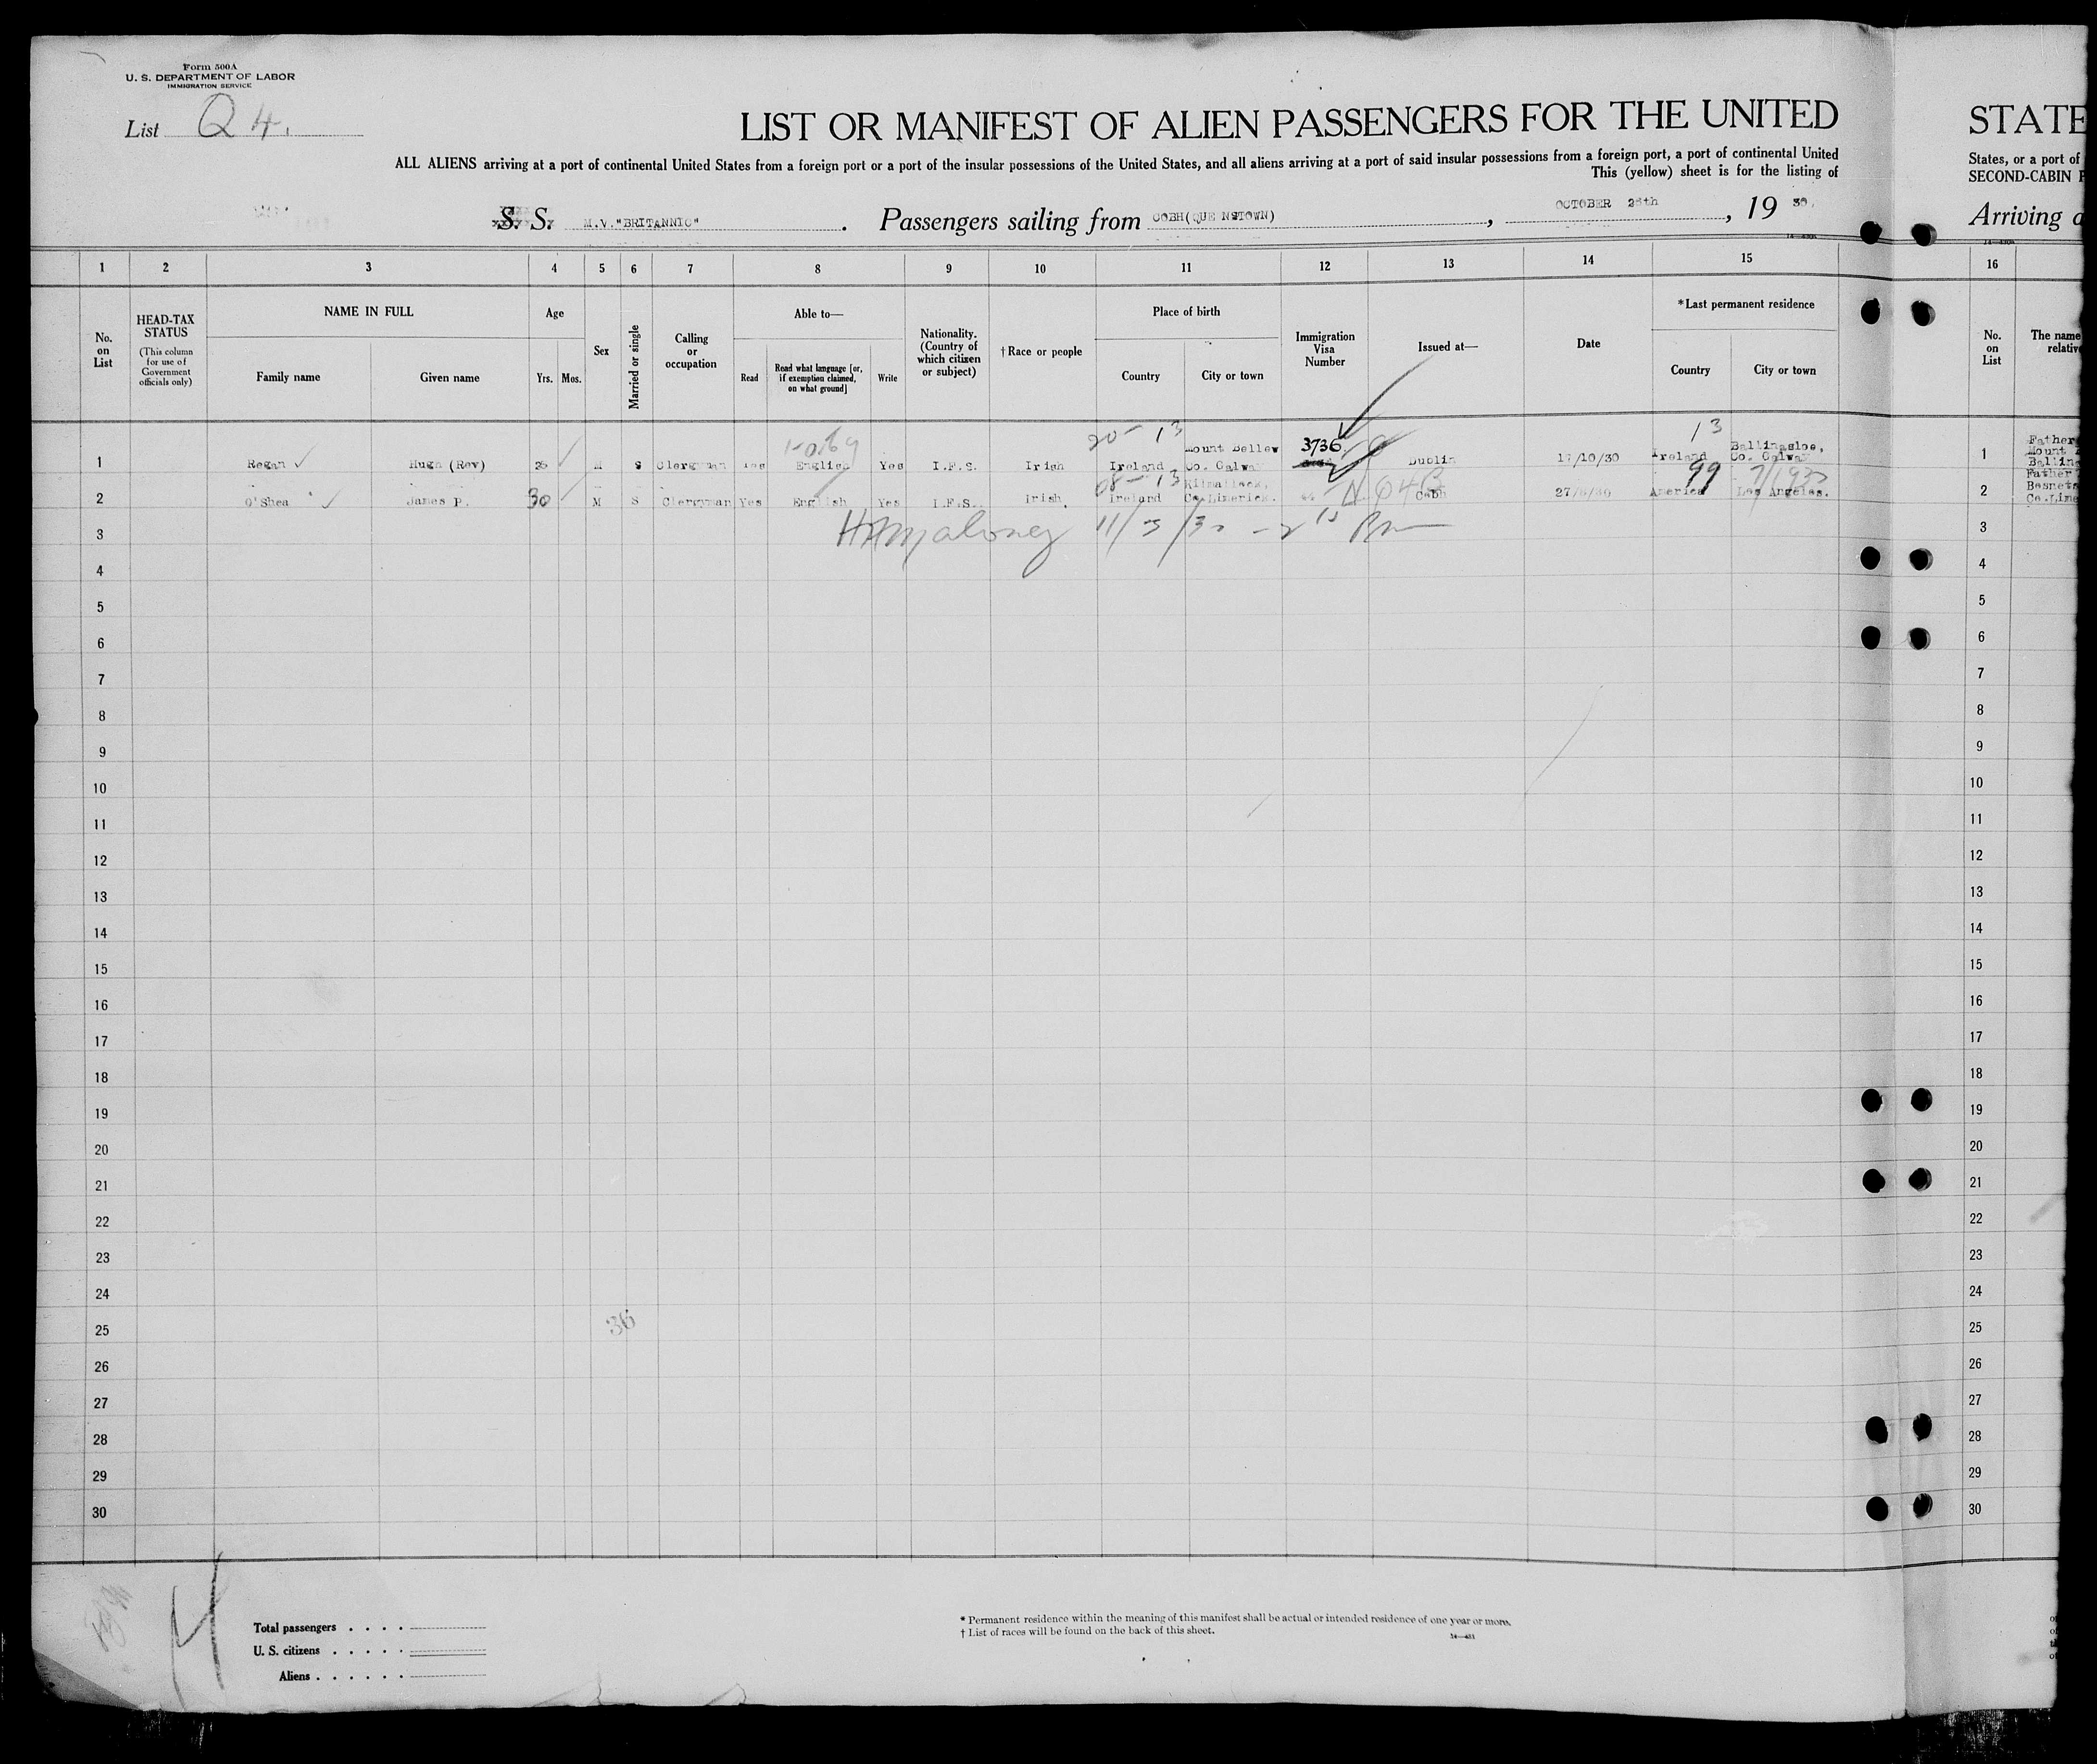 Form 500A
U. S. DEPARTMENT OF LABOR
IMMIGRATION SERVICE
List Q 4.
LIST OR MANIFEST OF ALIEN PASSENGERS FOR THE UNITED
STATE
ALL ALIENS arriving at a port of continental United States from a foreign port or a port of the insular possessions of the United States, and all aliens arriving at a port of said insular possessions from a foreign port, a port of continental United
States, or a port of
This (yellow) sheet is for the listing of
SECOND-CABIN P
S. S. M.V."BRITANNIC". Passengers sailing from COBH(QUE NSTOWN), OCTOBER 26th, 19 30.
Arriving a
1 2 3 4 5 6 7 8 9 10 11 12 13 14 15 16
No. on List
HEAD-TAX STATUS
(This column for use of Government officials only)
NAME IN FULL
Family name
Given name
Age
Yrs. Mos.
Sex
Married or single
Calling or occupation
Able to—
Read
Read what language [or, if exemption claimed, on what ground]
Write
Nationality. (Country of which citizen or subject)
†Race or people
Place of birth
Country
City or town
Immigration Visa Number
Issued at—
Date
*Last permanent residence
Country
City or town
No. on List
The name
relative
20-13
13
1 Regan Hugh (Rev) M S Clergyman Yes English Yes I.F.S. Irish Ireland Mount Bellew Co. Galway 3736 Dublin /10/30 Ireland Ballinasloe, Co. Galway
1 Father
Mount
Ballin
08-13
99
2 O'Shea James P. 30 M S Clergyman Yes English Yes I.F.S. Irish. Ireland Kilmallock, Co.Limerick. Cobh America Los Angeles.
2 Father
Co.Lime
3 3
4 4
5 5
6 6
7 7
8 8
9 9
10 10
11 11
12 12
13 13
14 14
15 15
16 16
17 17
18 18
19 19
20 20
21 21
22 22
23 23
24 24
36
25 25
26 26
27 27
28 28
29 29
30 30
Total passengers . . . .
U. S. citizens . . . . .
Aliens . . . . . .
* Permanent residence within the meaning of this manifest shall be actual or intended residence of one year or more.
† List of races will be found on the back of this sheet.